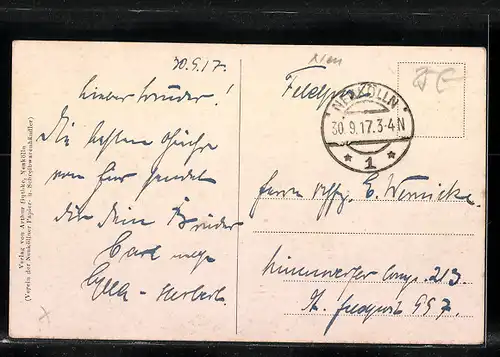 30.9.17.
Lieber Bruder!
Die besten Grüße
von hier sendet
dir dein Bruder
Carl
Herbert
Verlag von Arthur Neukölln
(Verein der Neuköllner Papier- u. Schreibwarenhändler)
Feldpost
NEUKÖLLN
30.9.17.3-4N
* 1 *
Herrn E. Wernicke
Minenwerfer Comp. 213
Feldpost 957.